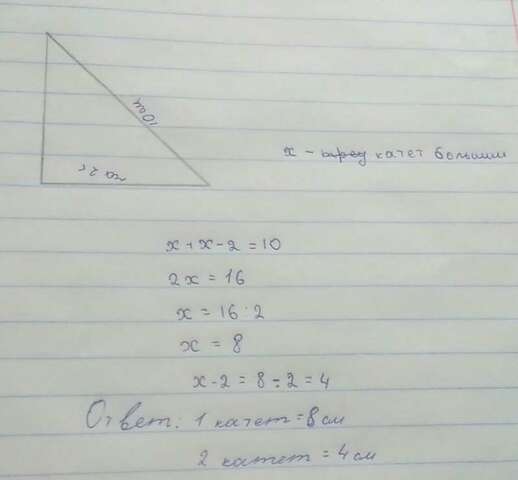 10 см
на 2 <
x - катет больший
x + x - 2 = 10
2x = 16
x = 16 : 2
x = 8
x - 2 = 8 - 2 = 4
Ответ: 1 катет = 8 см
2 катет = 4 см